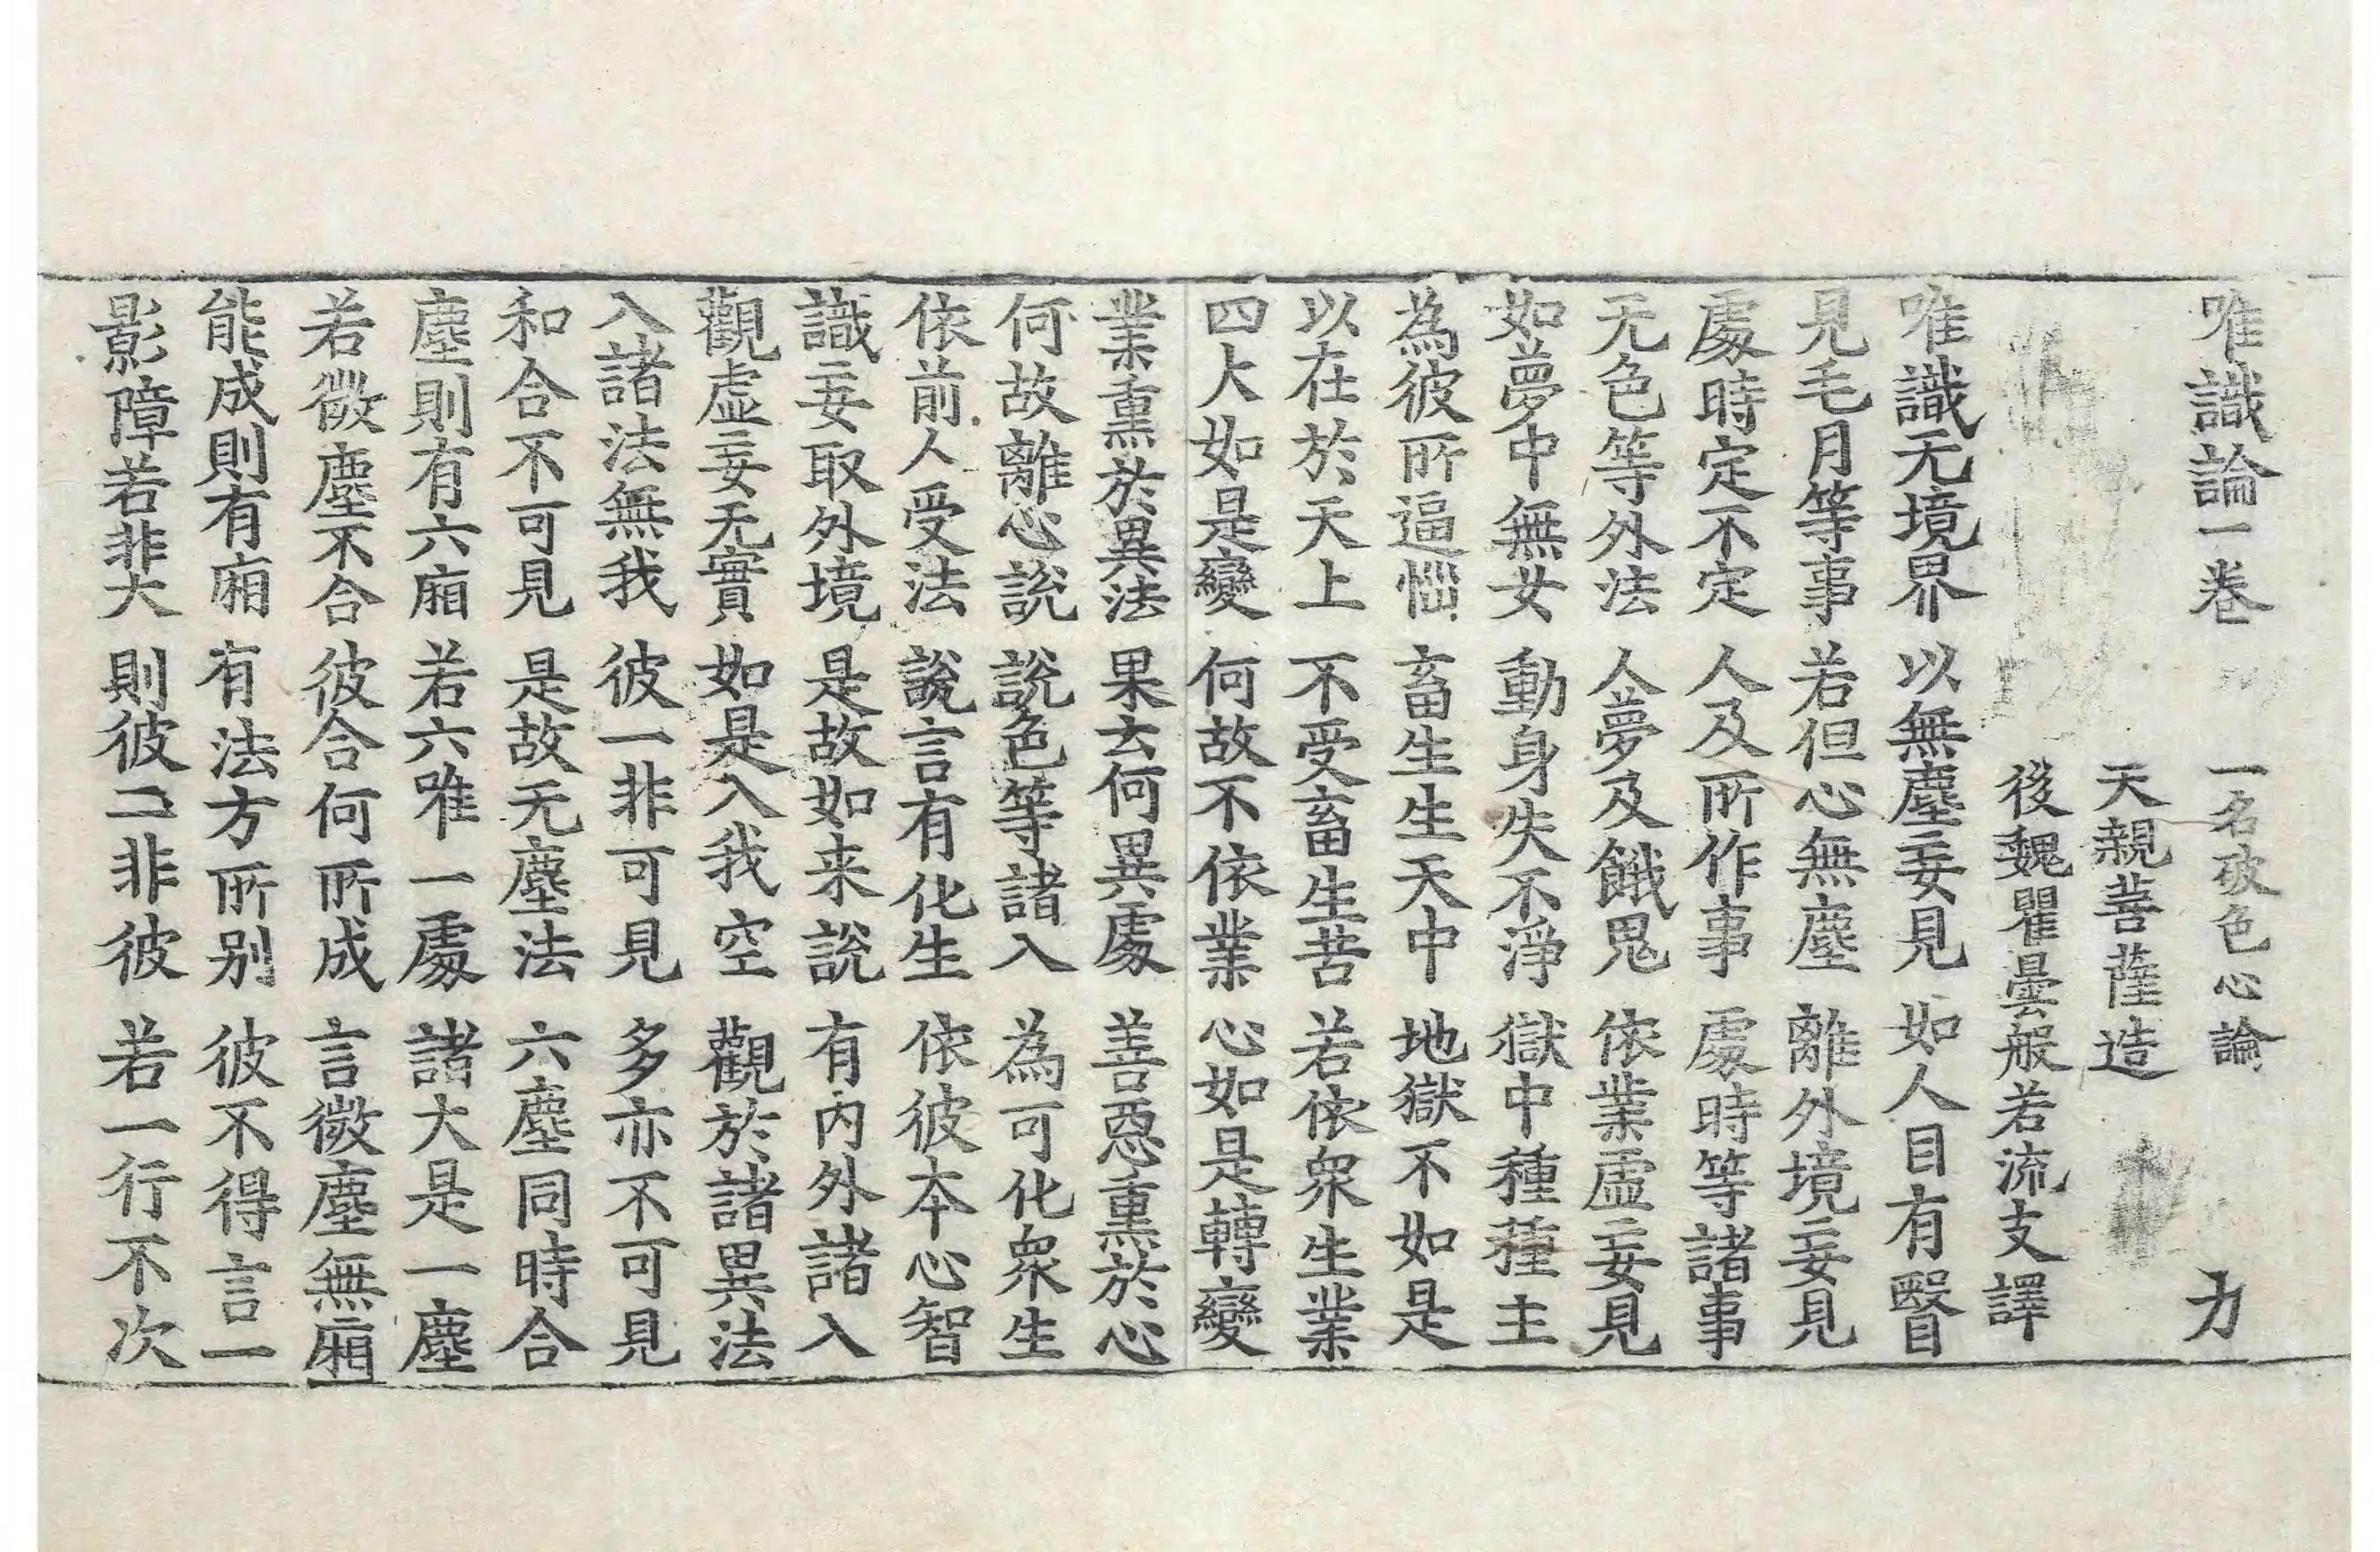 唯識論一卷 一名破色心論 力
天親菩薩造
後魏瞿曇般若流支譯
唯識无境界 以無塵妄見 如人目有瞖
見毛月等事 若但心無塵 離外境妄見
處時定不定 人及所作事 處時等諸事
无色等外法 人夢及餓鬼 依業虛妄見
如夢中無女 動身失不淨 獄中種種主
為彼所逼惱 畜生生天中 地獄不如是
以在於天上 不受畜生苦 若依衆生業
四大如是變 何故不依業 心如是轉變
業熏於異法 果云何異處 善惡熏於心
何故離心說 說色等諸入 為可化衆生
依前人受法 說言有化生 依彼本心智
識妄取外境 是故如来說 有內外諸入
觀虛妄无實 如是入我空 觀於諸異法
入諸法無我 彼一非可見 多亦不可見
和合不可見 是故无塵法 六塵同時合
塵則有六廂 若六唯一處 諸大是一塵
若微塵不合 彼合何所成 言微塵無廂
能成則有廂 有法方所别 彼不得言一
影障若非大 則彼二非彼 若一行不次